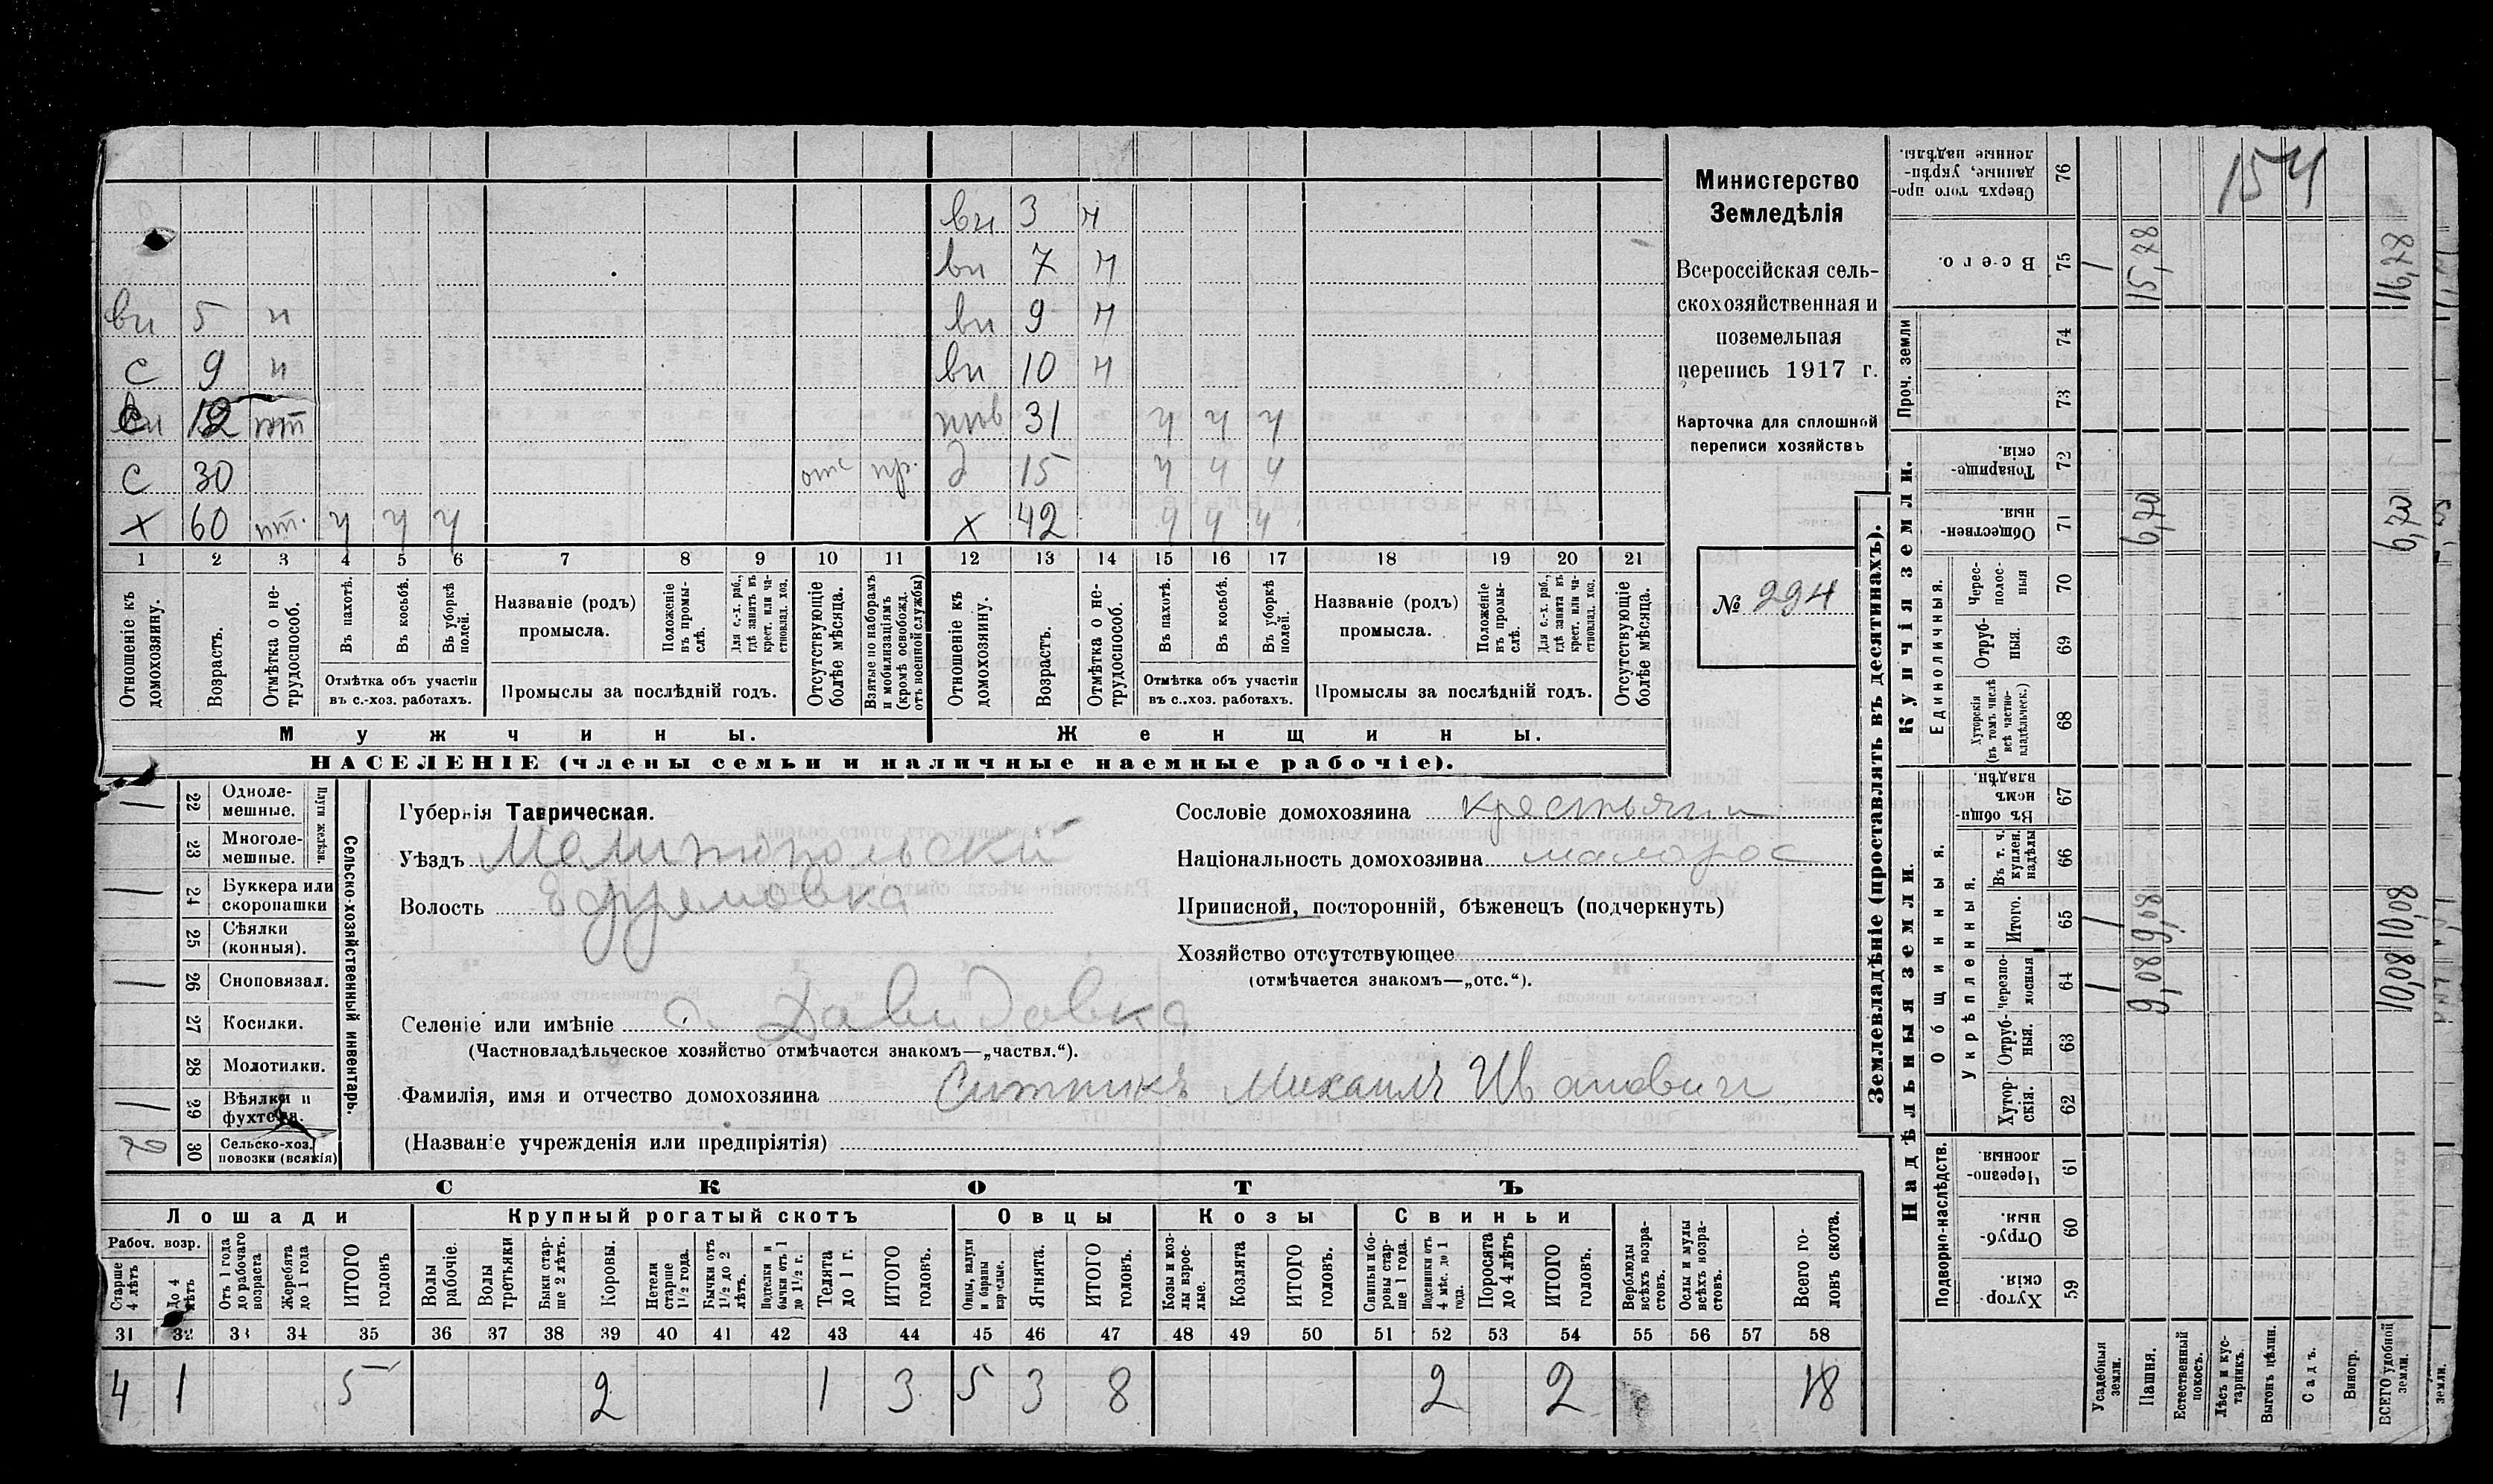 вн 3 н
вн 7 н
вн 5 н вн 9 н
с 9 н вн 10 н
12 пт 31 ч ч ч
с 30 отс пр. д 15 ч ч ч
х 60 пт. ч ч ч х 42 ч ч ч
1 2 3 4 5 6 7 8 9 10 11 12 13 14 15 16 17 18 19 20 21
Отношеніе къ домохозяину.
Возрастъ.
Отмѣтка о нетрудоспособ.
Въ пахотѣ.
Въ косьбѣ.
Въ уборкѣ полей.
Отмѣтка объ участіи
въ с.-хоз. работахъ.
Названіе (родъ)
промысла.
Положеніе въ промыслѣ.
Для с.-х. раб., гдѣ занятъ въ крест. или частновлад. хоз.
Промыслы за послѣдній годъ.
Отсутствующіе болѣе мѣсяца.
Взятые по наборамъ и мобилизаціямъ (кромѣ освобожд. отъ военной службы)
Отношеніе къ домохозяину.
Возрастъ.
Отмѣтка о нетрудоспособ.
Въ пахотѣ.
Въ косьбѣ.
Въ уборкѣ полей.
Отмѣтка объ участіи
въ с..хоз. работахъ.
Названіе (родъ)
промысла.
Положеніе въ промыслѣ.
Для с.-х. раб., гдѣ занята въ крест. или частновлад. хоз.
Промыслы за послѣдній годъ.
Отсутствующіе болѣе мѣсяца.
Мужчины.
Женщины.
НАСЕЛЕНІЕ (члены семьи и наличные наемные рабочіе).
Министерство
Земледѣлія
Всероссійская сель-
скохозяйственная и
поземельная
перепись 1917 г.
Карточка для сплошной
переписи хозяйствъ
№ 294
22 Одноле-
мешные.
23 Многоле-
мешные.
Плуги желѣзн.
24 Буккера или
скоропашки
25 Сѣялки
(конныя).
26 Сноповязал.
27 Косилки.
28 Молотилки.
29 Вѣялки и
фухтеля.
2 30 Сельско-хоз.
повозки (всякія)
Сельско-хозяйственный инвентарь.
Губернія Таврическая.
Уѣздъ Мелитопольский
Волость Ефремовка
Селеніе или имѣніе с. Давидовка
(Частновладѣльческое хозяйство отмѣчается знакомъ—„частвл.“).
Фамилія, имя и отчество домохозяина Ситникъ Михаилъ Иванович
(Названіе учрежденія или предпріятія)
Сословіе домохозяина крестьянин
Національность домохозяина малорос
Приписной, посторонній, бѣженецъ (подчеркнуть)
Хозяйство отсутствующее
(отмѣчается знакомъ—„отс.“).
СКОТЪ
Лошади
Крупный рогатый скотъ
Овцы
Козы
Свиньи
Рабоч. возр.
Старше 4 лѣтъ
До 4 лѣтъ
Отъ 1 года до рабочаго возраста
Жеребята до 1 года
ИТОГО головъ
Волы рабочіе.
Волы третьяки
Быки старше 2 лѣтъ.
Коровы.
Нетели старше 1½ года.
Бычки отъ 1½ до 2 лѣтъ.
Подтелки и бычки отъ 1 до 1½ г.
Телята до 1 г.
ИТОГО головъ.
Овцы, валухи и бараны взрослые.
Ягнята.
ИТОГО головъ.
Козы и козлы взрослые.
Козлята
ИТОГО головъ.
Свиньи и боровы старше 1 года.
Подсвинки отъ 4 мѣс. до 1 года.
Поросята до 4 лѣтъ
ИТОГО головъ.
Верблюды всѣхъ возрастовъ.
Ослы и мулы всѣхъ возрастовъ.
Всего головъ скота.
31 32 33 34 35 36 37 38 39 40 41 42 43 44 45 46 47 48 49 50 51 52 53 54 55 56 57 58
4 1 5 2 1 3 5 3 8 2 2 18
Землевладѣніе (проставлять въ десятинахъ).
Надѣльныя земли.
Купчія земли.
Проч. земли
Подворно-наслѣдств.
Общинныя.
Укрѣпленныя.
Единоличныя.
Сверхъ того проданные, укрѣпленные надѣлы.
76
Всего.
75
74
73
Товарищескія.
72
Общественныя.
71
Черес-
полос-
ныя
70
Отруб-
ныя.
69
Хуторскія
(въ томъ числѣ
всѣ частно-
владѣльческ.)
68
Въ общинномъ владѣн.
67
Въ т. ч. куплен. надѣлы
66
Итого.
65
Черезпо-
лосныя
64
Отруб-
ныя.
63
Хутор-
скія.
62
Черезпо-
лосныя.
61
Отруб-
ныя.
60
Хутор-
скія.
59
Усадебныя земли.
1 1 1
Пашня.
9,08 9,08 6,70 15,78
Естественный покосъ.
Лѣсъ и кустарникъ.
Выгонъ цѣлин.
Садъ.
Виногр.
ВСЕГО удобной земли.
10,08 10,08 6,70 16,78
земли.
154